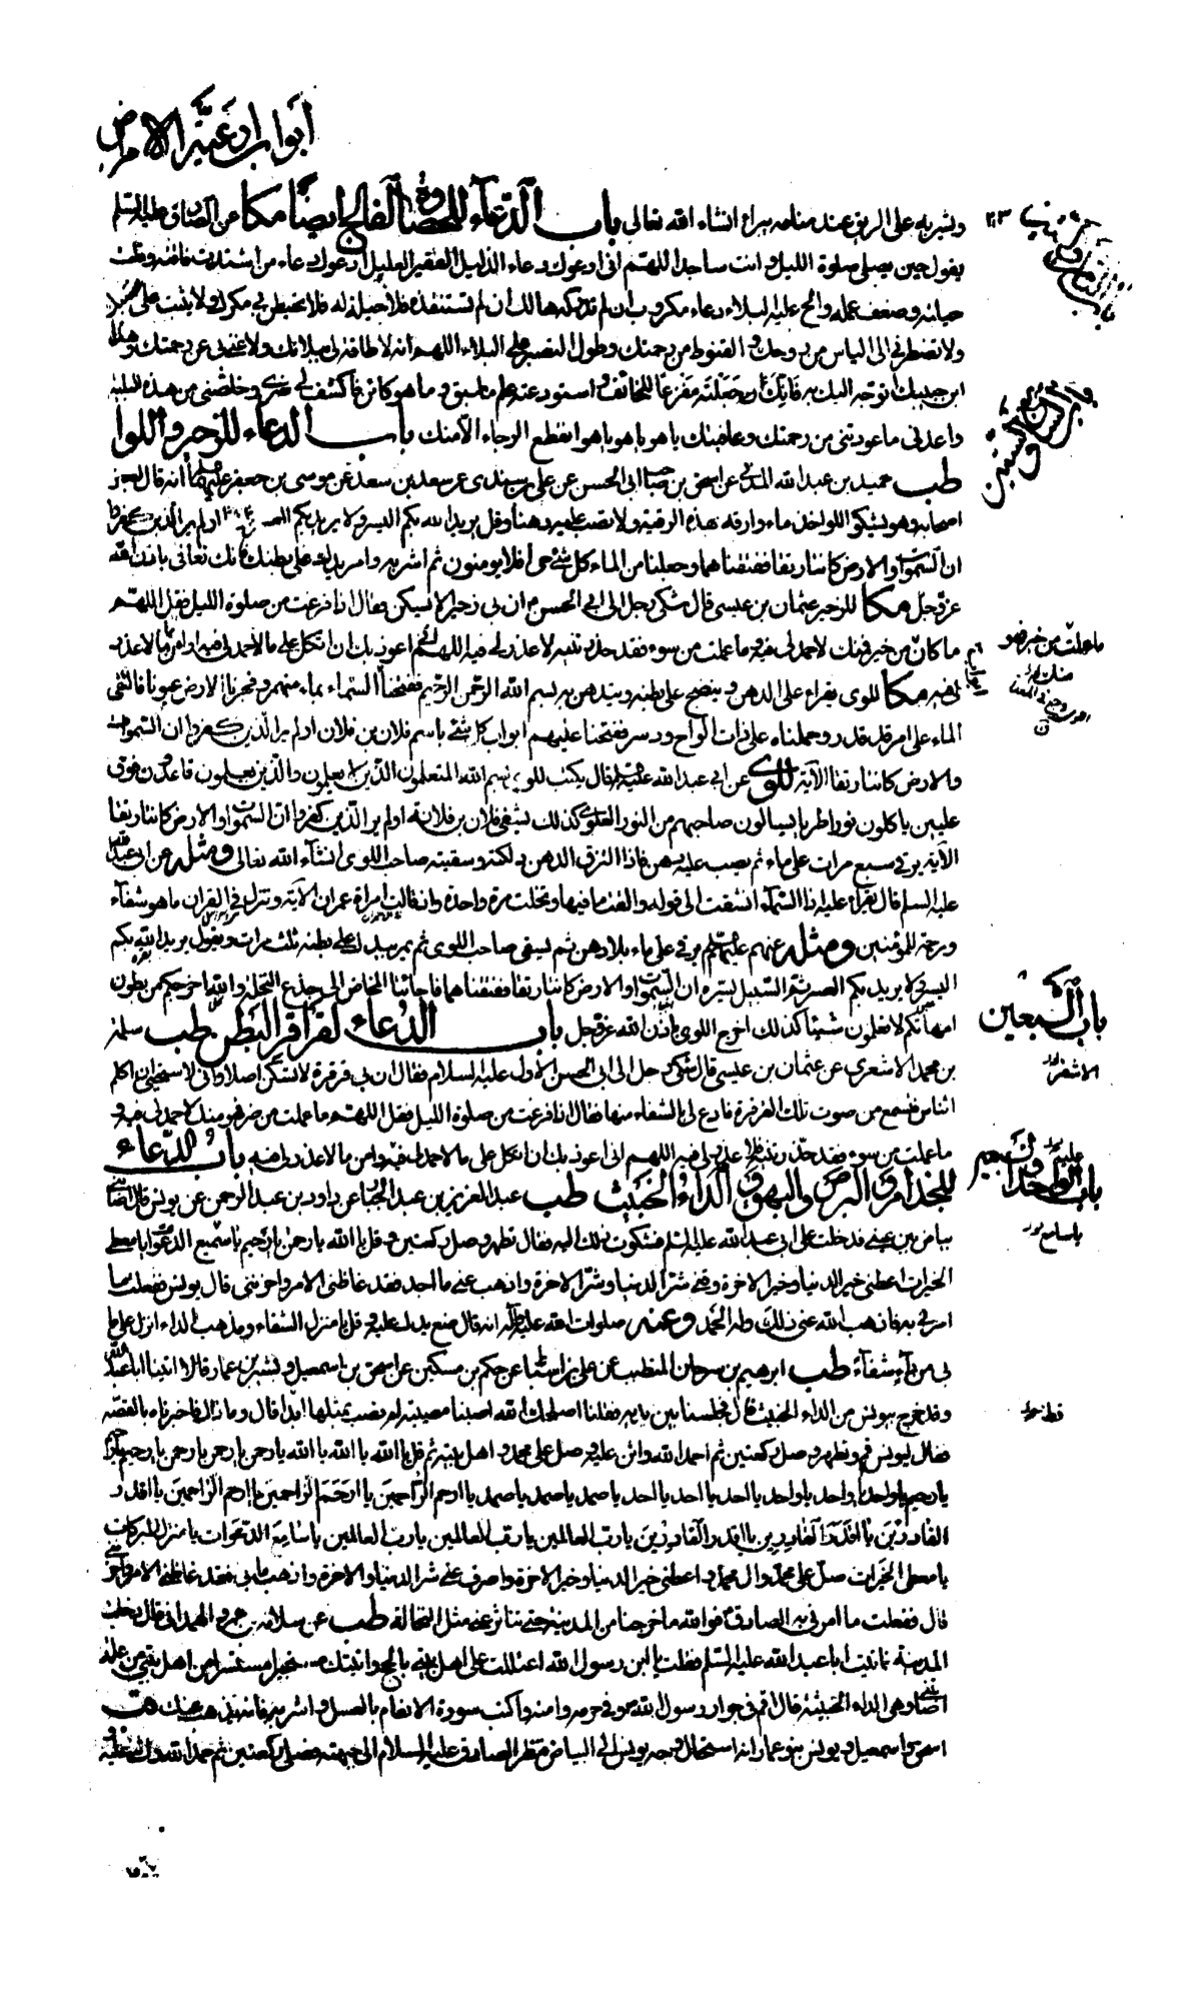 أبواب ادعية الامراض
ويشربه على الريق عند منامه يبرأ انشاء الله تعالى باب الدعاء للحصاة والفالج ايضا مكا عن الصادق عليه السلم
يقول حين يصلى صلوة الليل وانت ساجد اللهم انى ادعوك دعاء الذليل الفقير العليل ادعوك دعاء من اشتدت فاقته وقلت
حيلته وضعف عمله والح عليه البلاء دعاء مكروب ان لم تدركه هلك ان لم تستنقذه فلا حيلة له فلا تحط بى مكرك ولا يثبت على
ولا تضطرنى الى الياس من روحك والقنوط من رحمتك وطول التصبر على البلاء اللهم انه لا طاقة لى ببلائك ولا غنى بى عن رحمتك وهذا
ابن حبيبك اتوجه اليك به فانك جعلته مفزعا للخائف واستودعته علم ما سبق وما هو كائن فاكشف لى ضرى وخلصنى من هذه البلية
واعدنى ما عودتنى من رحمتك وعافيتك يا هو يا هو يا هو انقطع الرجاء الا منك باب الدعاء للزحير واللوا
طب حميد بن عبد الله المدنى عن اسحق بن صاحب ابى الحسن عن على بن سندى عن سعد بن سعد عن موسى بن جعفر عليهما انه قال لبعض
اصحابه وهو يشكو اللوا خذ ماء وارقه بهذه الرقية ولا تصب عليه دهنا وقل يريد الله بكم اليسر ولا يريد بكم العسر اولم ير الذين كفروا
ان السموات والارض كانتا رتقا ففتقناهما وجعلنا من الماء كل شئ حى افلا يؤمنون ثم اشربه وامر يدك على بطنك فانك تعافى باذن الله
عز وجل مكا للزحير عثمان بن عيسى قال شكى رجل الى ابى الحسن ان بى زحيرا لا يسكن فقال اذا فرغت من صلوة الليل فقل اللهم
ما كان من خير فمنك لا حمد لى فيه وما عملت من سوء فقد حذرتنيه لا عذر لى فيه اللهم انى اعوذ بك ان اتكل على ما لا حمد لى فيه او امن ما لا عذر
لى فيه مكا للوى يقراء على الدهن وينضح على بطنه ويتدهن به بسم الله الرحمن الرحيم ففتحنا السماء بماء منهمر وفجرنا الارض عيونا فالتقى
الماء على امر قد قدر وحملناه على ذات الواح ودسر ففتحنا عليهم ابواب كل شئ باسم فلان بن فلان اولم ير الذين كفروا ان السموات
والارض كانتا رتقا الآية للوى عن ابى عبد الله عليه السلم قال يكتب للوى بسم الله المتعلمون الذين لا يعلمون والذين يعلمون قاعدون فوق
عليين ياكلون نورا طريا يسالون صاحبهم من النور العلوى كذلك يشفى فلان بن فلانة اولم ير الذين كفروا ان السموات والارض كانتا رتقا
الآية يرقى سبع مرات على ماء ثم يصب عليه دهن فاذا التزق الدهن دلكته وسقيته صاحب اللوى انشاء الله تعالى ومثله عن ابى عبد الله
عليه السلم قال يقراء عليه اذا السماء انشقت الى قوله والقت ما فيها وتخلت مرة واحدة واذ قالت امراة عمران الآية وننزل من القران ما هو شفآء
ورحمة للمؤمنين ومثله عنهم عليهم السلم يرقى على ماء بلا دهن ثم يسقى صاحب اللوى ثم يمر بيدك على بطنه ثلث مرات ويقول يريد الله بكم
اليسر ولا يريد بكم العسر ثم السبيل يسره ان السموات والارض كانتا رتقا ففتقناهما فاجاءها المخاض الى جذع النخلة والله اخرجكم من بطون
امهاتكم لا تعلمون شيئا كذلك اخرج اللوى باذن الله عز وجل باب الدعاء لقراقر البطن طب سلمة
بن محمد الاشعرى عن عثمان بن عيسى قال شكى رجل الى ابى الحسن الاول عليه السلام فقال ان بى قرقرة لا تسكن اصلا وانى لاستحيى ان اكلم
الناس فيسمع من صوت تلك القرقرة فادع لى بالشفاء منها فقال اذا فرغت من صلوة الليل فقل اللهم ما عملت من خير فهو منك لا حمد لى فيه و
ما عملت من سوء فقد حذرتنيه فلا عذر لى فيه اللهم انى اعوذ بك ان اتكل على ما لا حمد لى فيه او امن ما لا عذر لى فيه باب الدعاء
للجذام والبرص والبهق والداء الخبيث طب عبد العزيز بن عبد الجبار عن داود بن عبد الرحمن عن يونس قال اصابنى
بياض بين عينى فدخلت على ابى عبد الله عليه السلم فشكوت ذلك اليه فقال تطهر وصل ركعتين وقل يا الله يا رحمن يا رحيم يا سميع الدعوات يا معطى
الخيرات اعطنى خير الدنيا وخير الاخرة وقنى شر الدنيا وشر الاخرة واذهب عنى ما اجد فقد غاظنى الامر واحزننى قال يونس ففعلت ما
امرنى به فاذهب الله عنى ذلك وله الحمد وعنه صلوات الله عليه وآله انه قال ضع يدك عليه وقل يا منزل الشفاء ومذهب الداء انزل على ما
بى من داء شفاء طب ابرهيم بن سرحان المتطبب عن على بن اسباط عن حكم بن مسكين عن اسحق بن اسمعيل وبشر بن عمار قالا اتينا ابا عبد الله
وقد خرج بيونس من الداء الخبيث قال فجلسنا بين يديه فقلنا اصلحك الله اصبنا مصيبة لم نصب بمثلها ابدا قال وما ذاك فاخبرناه بالقصة
فقال ليونس قم وتطهر وصل ركعتين ثم احمد الله واثن عليه وصل على محمد واهل بيته ثم قل يا الله يا الله يا الله يا رحمن يا رحمن يا رحمن يا رحيم يا رحيم
يا رحيم يا واحد يا واحد يا واحد يا احد يا احد يا احد يا صمد يا صمد يا صمد يا ارحم الراحمين يا ارحم الراحمين يا ارحم الراحمين يا اقدر
القادرين يا اقدر القادرين يا اقدر القادرين يا رب العالمين يا رب العالمين يا رب العالمين يا سامع الدعوات يا منزل البركات
يا معطى الخيرات صل على محمد وآل محمد واعطنى خير الدنيا وخير الاخرة واصرف عنى شر الدنيا والاخرة واذهب ما بى فقد غاظنى الامر واحزننى
قال ففعلت ما امرنى به الصادق فوالله ما خرجنا من المدينة حتى تناثر عنى مثل النخالة طب عن سلامة بن عمرو الهمدانى قال دخلت
المدينة فاتيت ابا عبد الله عليه السلم فقلت يا ابن رسول الله اعتللت على اهل بيتى بالحج واتيتك مستجيرا مستسرا من اهل بيتى من علة
اصابتنى وهى الداء الخبيثة قال اقم فى جوار رسول الله وفى حرمه وامنه واكتب سورة الانعام بالعسل واشربه فانه يذهب عنك
اسحق واسمعيل ويونس بنو عمار انه استحال وجه يونس الى البياض فنظر الصادق عليه السلام الى جبهته فصلى ركعتين ثم حمد الله واثنى عليه
٢٠٣
ما عملت من خير فهو
منك
باب السبعين
الاشعرى
باب الواحد والسبعين
يا سامع